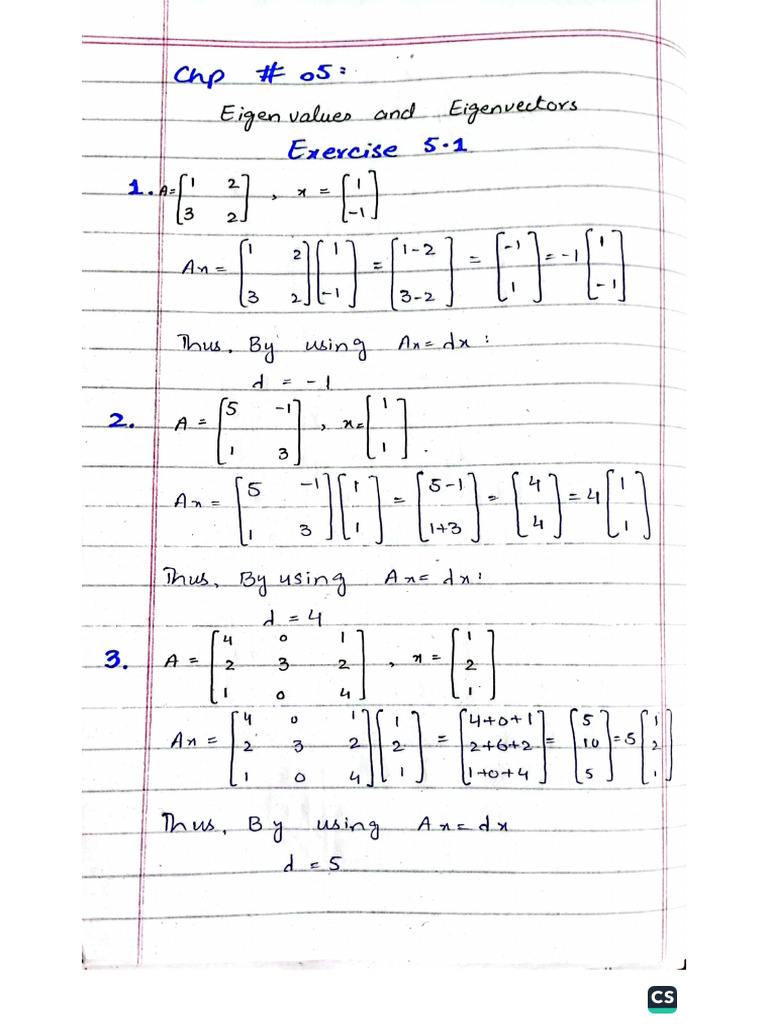 Chp # 05:
Eigen values and Eigenvectors
Exercise 5.1
1. A = [1 2; 3 2], x = [1; -1]
Ax = [1 2; 3 2] [1; -1] = [1-2; 3-2] = [-1; 1] = -1 [1; -1]
Thus, By using Ax = dx:
d = -1
2. A = [5 -1; 1 3], x = [1; 1].
Ax = [5 -1; 1 3] [1; 1] = [5-1; 1+3] = [4; 4] = 4 [1; 1]
Thus, By using Ax = dx:
d = 4
3. A = [4 0 1; 2 3 2; 1 0 4], x = [1; 2; 1]
Ax = [4 0 1; 2 3 2; 1 0 4] [1; 2; 1] = [4+0+1; 2+6+2; 1+0+4] = [5; 10; 5] = 5 [1; 2; 1]
Thus, By using Ax = dx
d = 5
CS